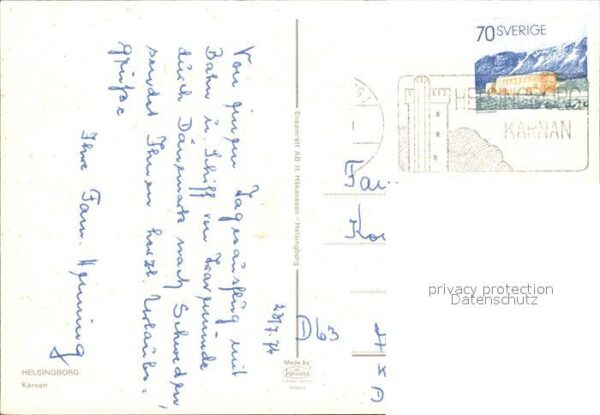 Von einem Tagesausflug mit
Bahn u. Schiff von Travemünde
durch Dänemark nach Schweden
sendet Ihnen herzl. Urlaubs=
grüße
Ihre Fam. Henning
23/7.74
HELSINGBORG
Kärnan
Ensamrätt AB H. Håkansson - Helsingborg
Made by
KRÜGER
70 SVERIGE
HELSINGBORG
KÄRNAN
Fa
Ko
D 63
privacy protection
Datenschutz